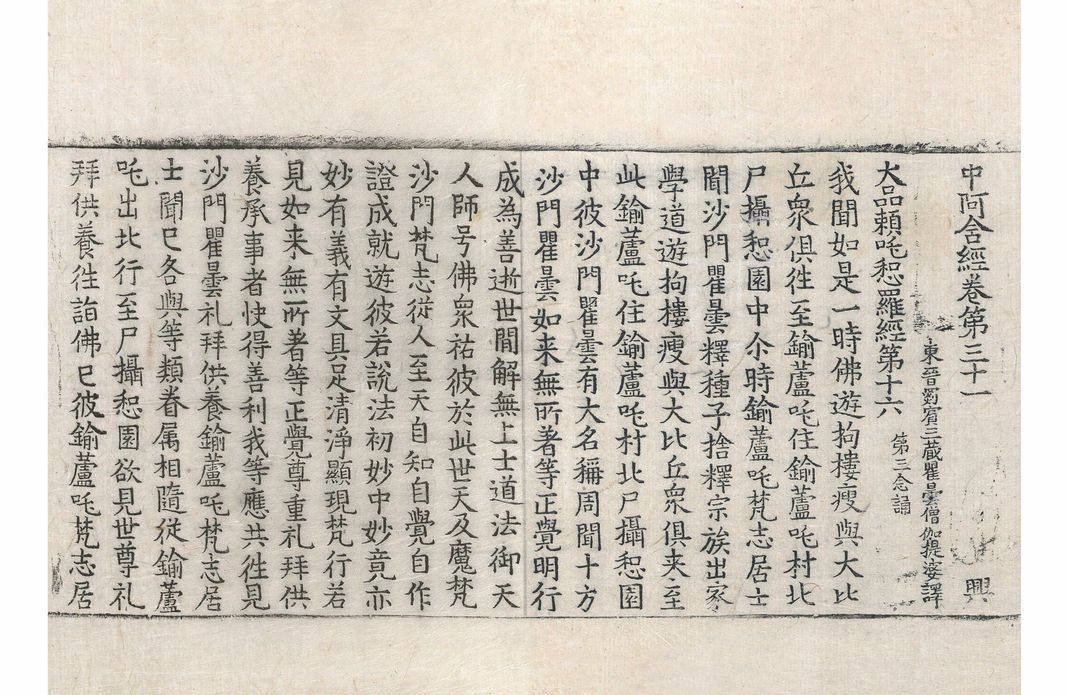 中阿含經卷第三十一 興
東晉罽賓三藏瞿曇僧伽提婆譯
大品頼吒惒羅經第十六 第三念誦
我聞如是一時佛遊拘樓瘦與大比
丘衆俱徃至鍮蘆吒住鍮蘆吒村北
尸攝惒園中尒時鍮蘆吒梵志居士
聞沙門瞿曇釋種子捨釋宗族出家
學道遊拘樓瘦與大比丘衆俱来至
此鍮蘆吒住鍮蘆吒村北尸攝惒園
中彼沙門瞿曇有大名稱周聞十方
沙門瞿曇如来無所著等正覺明行
成為善逝世間解無上士道法御天
人師号佛衆祐彼於此世天及魔梵
沙門梵志從人至天自知自覺自作
證成就遊彼若說法初妙中妙竟亦
妙有義有文具足清淨顯現梵行若
見如来無所著等正覺尊重礼拜供
養承事者快得善利我等應共徃見
沙門瞿曇礼拜供養鍮蘆吒梵志居
士聞已各與等類眷属相隨從鍮蘆
吒出北行至尸攝惒園欲見世尊礼
拜供養徃詣佛已彼鍮蘆吒梵志居